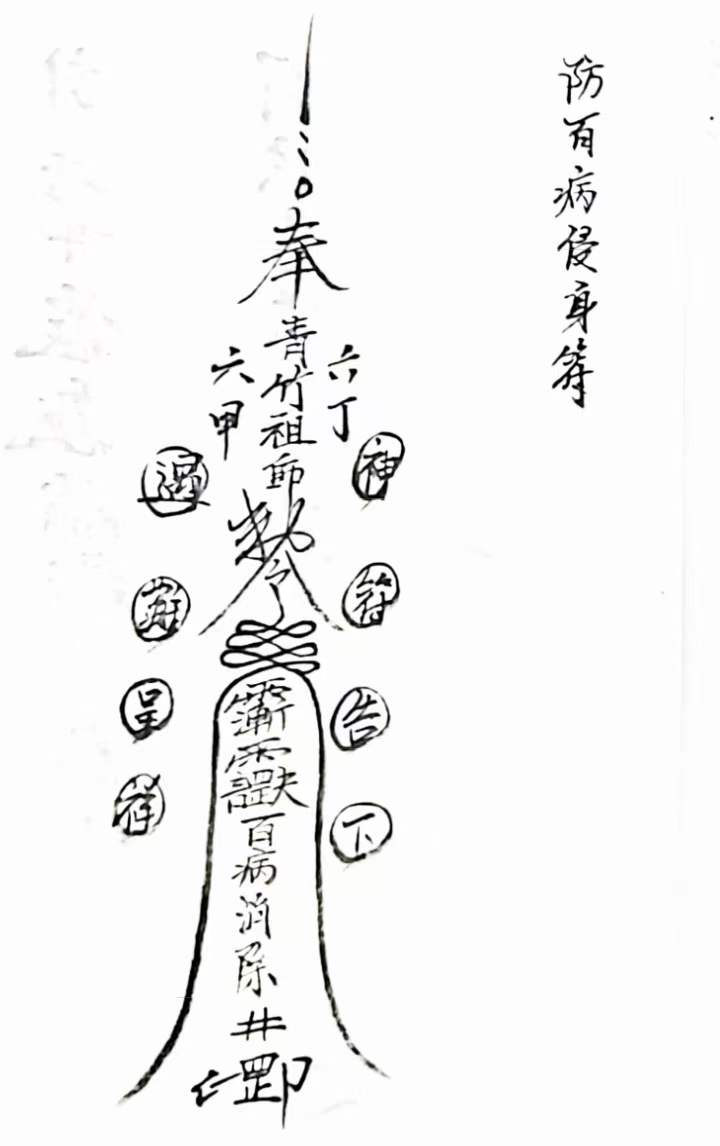 防百病侵身符
奉
青竹祖師
六丁
六甲
神符告下
遇
呈祥
百病消除
井
罡印